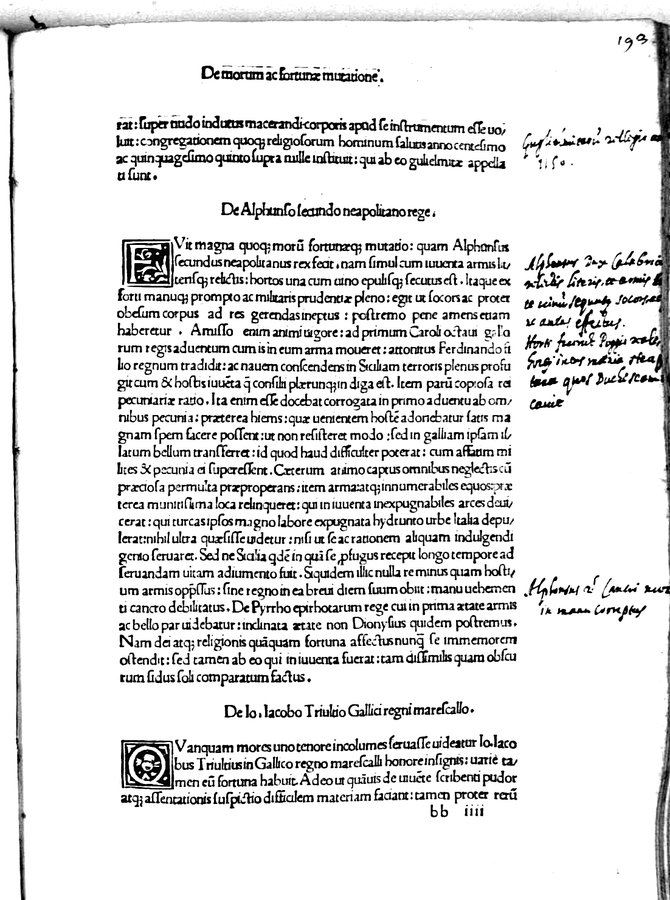 193
De morum ac fortunæ mutatione.
rat: super nudo indutus macerandi corporis apud se instrumentum esse uo/
luit: congregationem quoq; religiosorum hominum salutis anno centesimo
ac quinquagesimo quinto supra mille instituit: qui ab eo gulielmitæ appella
ti sunt.
De Alphonso secundo neapolitano rege.
FVit magna quoq; morū fortunæq; mutatio: quam Alphonsus
secundus neapolitanus rex fecit. nam simul cum iuuenta armis lit/
terisq; relictis: hortos una cum uino epulisq; secutus est. Itaque ex
forti manuq; prompto ac militaris prudentiæ pleno: egit ut socors ac præter
obesum corpus ad res gerendas ineptus: postremo pene amens etiam
haberetur. Amisso enim animi uigore: ad primum Caroli octaui gallo
rum regis aduentum cum is in eum arma moueret: attonitus Ferdinando fi
lio regnum tradidit: ac nauem conscendens in Siciliam terroris plenus profu
git cum & hostis iuuēta q̄ consilii plærunq; indiga est. Item parū copiosa rei
pecuniariæ ratio. Ita enim esse docebat corrogata in primo aduentu ab om/
nibus pecunia: præterea hiems: quæ uenientem hostē adoriebatur satis ma
gnam spem facere possent: ut non resisteret modo: sed in galliam ipsam il/
latum bellum transferret: id quod haud difficulter poterat: cum affatim mi
lites & pecunia ei superessent. Cæterum animo captus omnibus neglectis cū
præciosa permulta præproperans: item arma: atq; innumerabiles equos: præ
terea munitissima loca relinqueret: qui in iuuenta inexpugnabiles arces deui/
cerat: qui turcas ipsos magno labore expugnata hydrunto urbe Italia depu/
lerat: nihil ultra quæsisse uidetur: nisi ut se ac rationem aliquam indulgendi
genio seruaret. Sed ne Sicilia qdē in quā se pfugus recepit longo tempore ad
seruandam uitam adiumento fuit. Siquidem illic nulla re minus quam hosti/
um armis opp̄ssus: sine regno in ea breui diem suum obiit: manu uehemen
ti cancro debilitatus. De Pyrrho epirhotarum rege cui in prima ætate armis
ac bello par uidebatur: inclinata ætate non Dionysius quidem postremus.
Nam dei atq; religionis quāquam fortuna affectus nunq̄ se immemorem
ostendit: sed tamen ab eo qui in iuuenta fuerat: tam dissimilis quam obscu
rum sidus soli comparatum factus.
De Io. Iacobo Triultio Gallici regni marescallo.
QVanquam mores uno tenore incolumes seruasse uideatur Io. Iaco
bus Triultius in Gallico regno marescalli honore insignis: uariē ta/
men eū fortuna habuit. Adeo ut quāuis de uiuēte scribenti pudor
atq; assentationis suspictio difficilem materiam faciant: tamen præter rerū
bb iiii
1150.
Alphonsus Dux Calabriæ
Alphonsus
in manu correptus